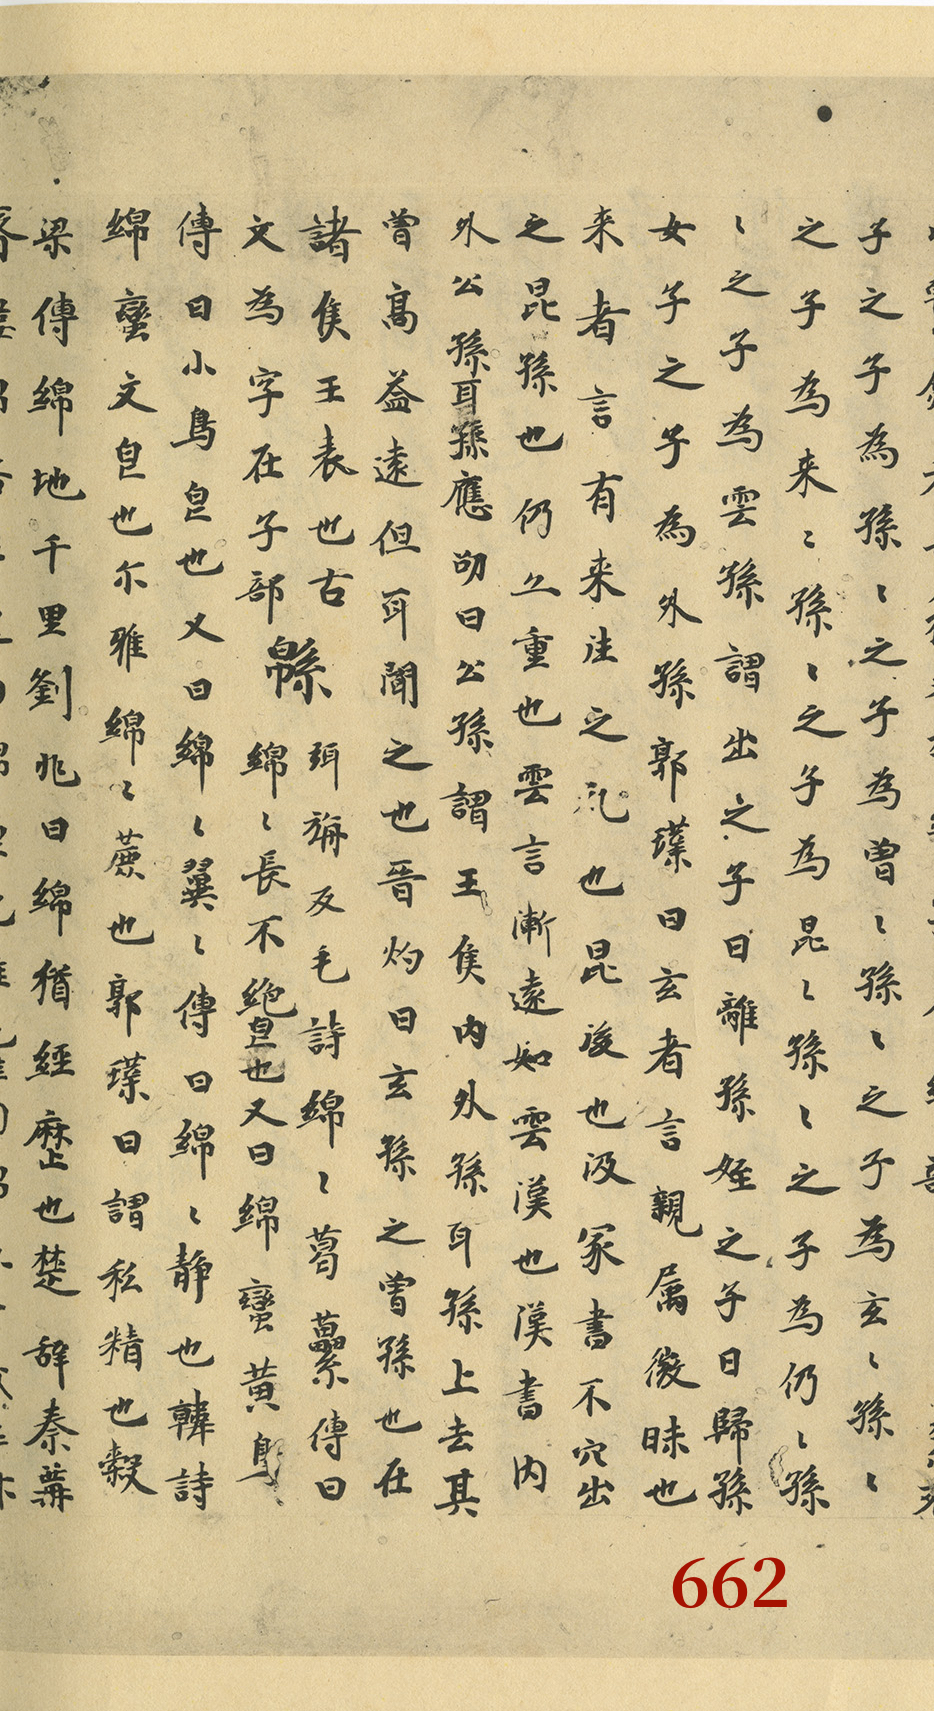 子之子為孫〻之子為曽〻孫〻之子為玄〻孫〻
之子為来〻孫〻之子為昆〻孫〻之子為仍〻孫
〻之子為雲孫謂出之子曰離孫姪之子曰歸孫
女子之子為外孫郭璞曰玄者言親属微昧也
来者言有来往之也昆後也汲冢書不穴出
之昆孫也仍亦重也雲言漸遠如雲漢也漢書内
外公孫耳孫應劭曰公孫謂王侯内外孫耳孫上去其
曽髙益遠但耳聞之也晉灼曰玄孫之曽孫也在
諸侯王表也古
文為字在子部緜綿〻長不絶皃也又曰綿蠻黄鳥
弭旃反毛詩綿〻葛藟傳曰
傳曰小鳥皃也又曰綿〻翼〻傳曰綿〻静也韓詩
綿蠻文皃也尓雅綿〻藨也郭璞曰謂耘精也糓
梁傳綿地千里劉兆曰綿猶經歷也楚辞秦篝
662